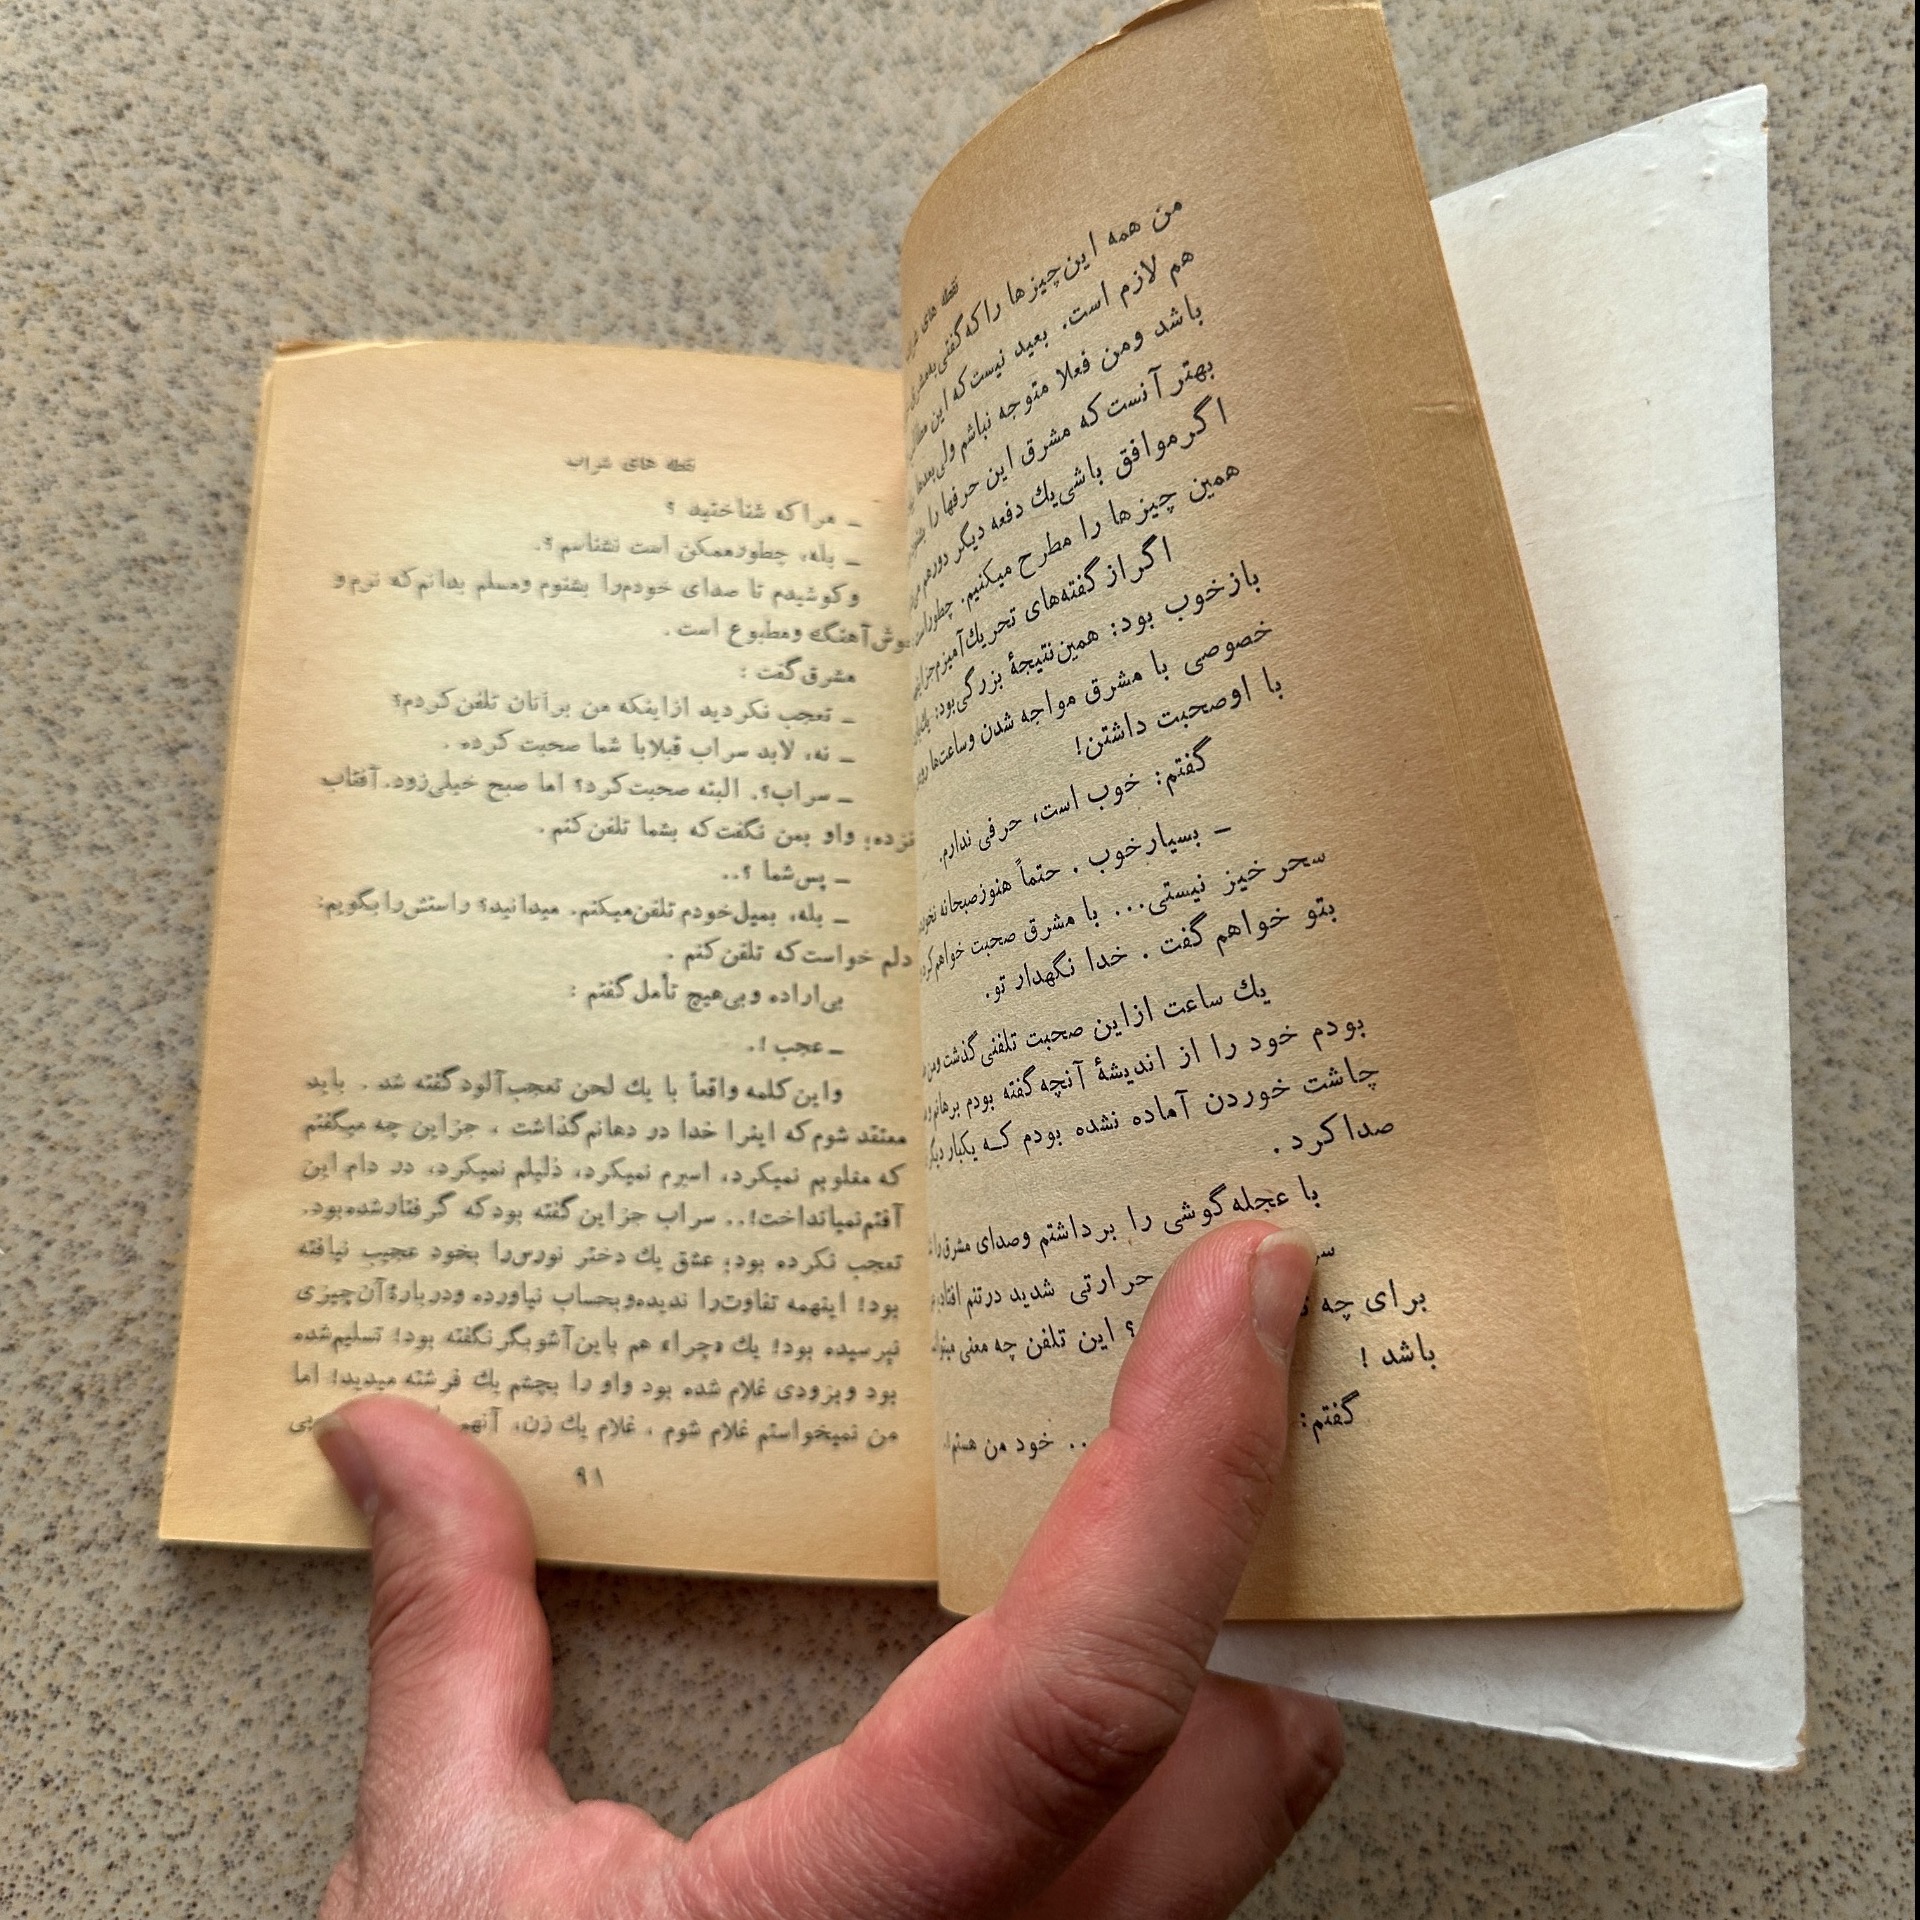 نقطه های
من همه این‌چیزها را که گفتی به
هم لازم است. بعید نیست که این
باشد ومن فعلا متوجه نباشم ولی بعدها
بهتر آنست که مشرق این حرفها را
اگر موافق باشی یك دفعه دیگر دورهم
همین چیزها را مطرح میکنیم. چطور است
اگر از گفته‌های تحریك‌آمیزم جز این
باز خوب بود: همین نتیجهٔ بزرگی بود:
خصوصی با مشرق مواجه شدن وساعت‌ها
با او صحبت داشتن!
گفتم: خوب است، حرفی ندارم.
ـ بسیار خوب . حتماً هنوز صبحانه
سحر خیز نیستی... با مشرق صحبت خواهم کرد
بتو خواهم گفت . خدا نگهدار تو.
یك ساعت از این صحبت تلفنی گذشت ومن
بودم خود را از اندیشهٔ آنچه گفته بودم برهانم
چاشت خوردن آماده نشده بودم کـه یکبار دیگر
صدا کرد .
با عجله گوشی را برداشتم وصدای مشرق را
حرارتی شدید در تنم افتاد
برای چه ؟ این تلفن چه معنی
باشد !
گفتم: .. خود من هستم
نقطه های شراب
ـ مرا که شناختید ؟
ـ بله، چطور ممکن است نشناسم ؟.
و کوشیدم تا صدای خودم را بشنوم ومسلم بدانم که نرم و
خوش‌آهنگ ومطبوع است .
مشرق گفت :
ـ تعجب نکردید از اینکه من برایتان تلفن کردم؟
ـ نه، لابد سراب قبلا با شما صحبت کرده .
ـ سراب؟. البته صحبت کرد؟ اما صبح خیلی زود. آفتاب
نزده؛ واو بمن نگفت که بشما تلفن کنم .
ـ پس شما ؟..
ـ بله، بمیل خودم تلفن میکنم. میدانید؟ راستش را بگویم:
دلم خواست که تلفن کنم .
بی‌اراده و بی‌هیچ تأمل گفتم :
ـ عجب !.
و این کلمه واقعاً با یك لحن تعجب‌آلود گفته شد . باید
معتقد شوم که اینرا خدا در دهانم گذاشت . جز این چه میگفتم
که مغلوبم نمیکرد، اسیرم نمیکرد، ذلیلم نمیکرد، در دام این
آفتم نمیانداخت!.. سراب جز این گفته بود که گرفتار شده بود.
تعجب نکرده بود؛ عشق یك دختر نورس را بخود عجیب نیافته
بود! اینهمه تفاوت را ندیده و بحساب نیاورده و دربارهٔ آن چیزی
نپرسیده بود! یك «چرا» هم باین آشوبگر نگفته بود! تسلیم شده
بود و بزودی غلام شده بود واو را بچشم یك فرشته میدید! اما
من نمیخواستم غلام شوم . غلام یك زن، آنهم
۹۱